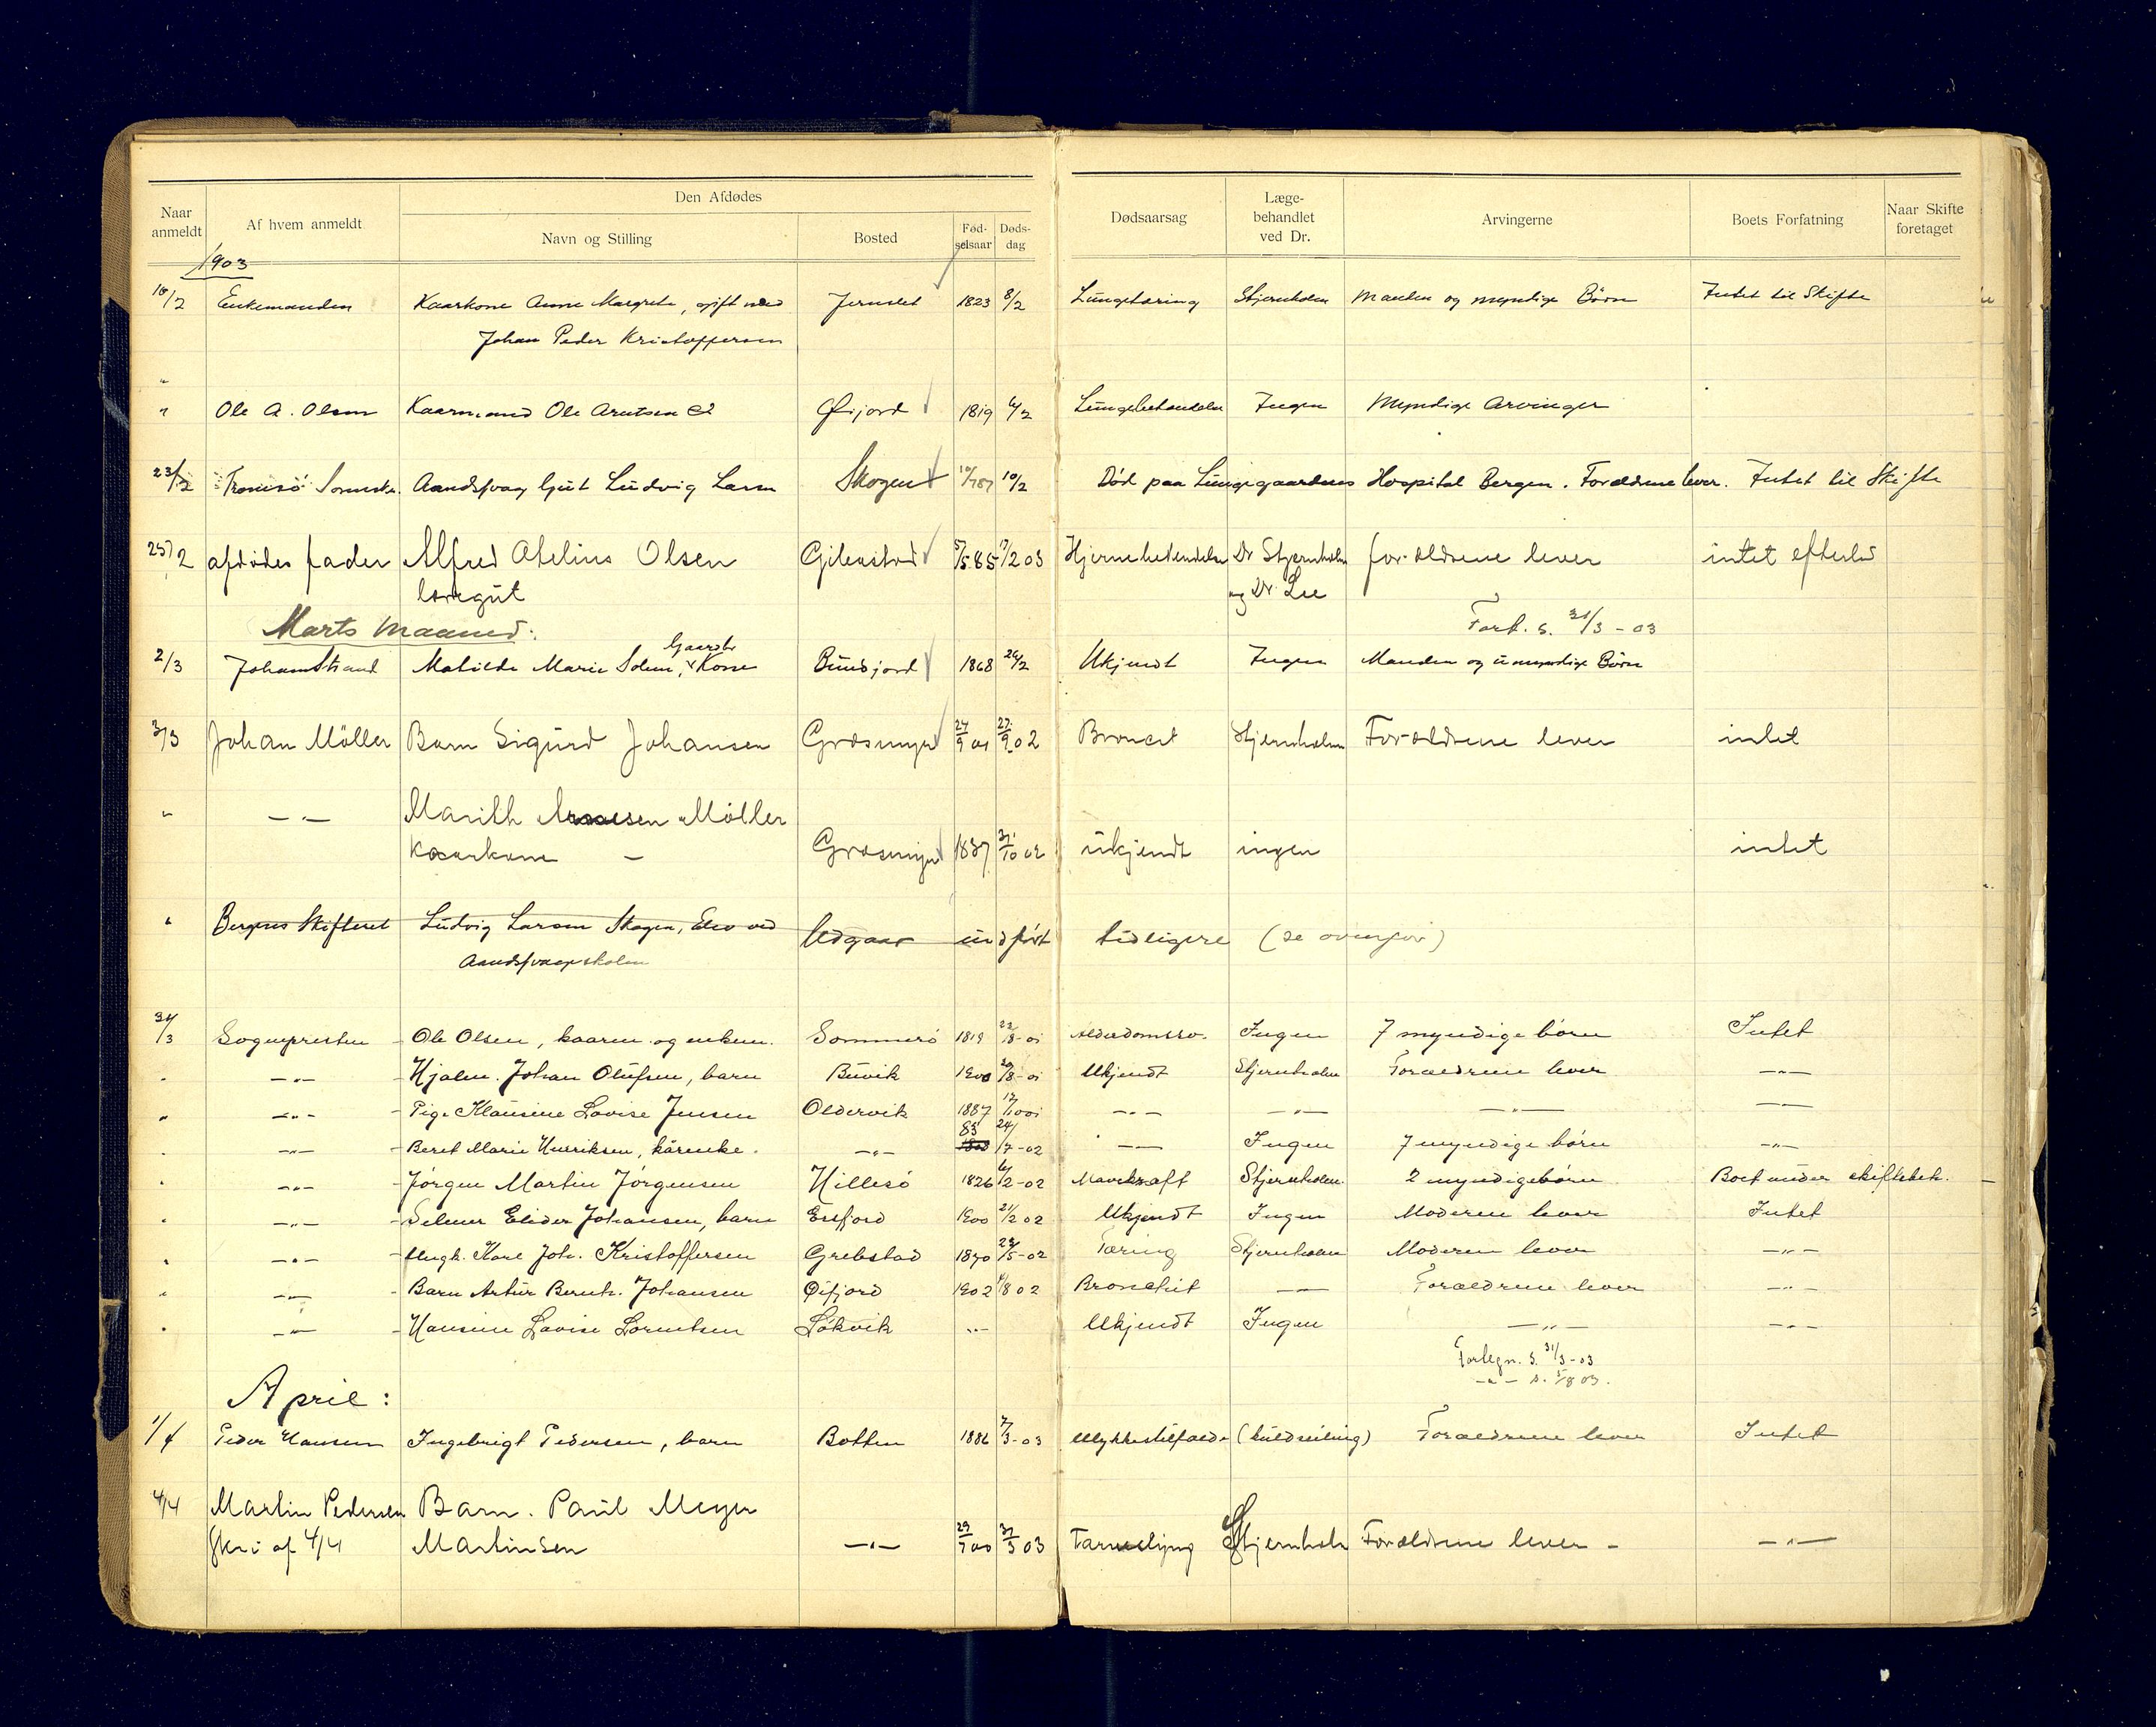 Naar anmeldt
Af hvem anmeldt
Den Afdødes
Navn og Stilling
Bosted
Fød-selsaar
Døds-dag
Dødsaarsag
Læge-behandlet ved Dr.
Arvingerne
Boets Forfatning
Naar Skifte foretaget
1903
10/2 Enkemanden Kaarkone Anne Margrete, gift med Jernslet 1823 8/2 Lungetæring Stjernholm Manden og myndige Børn Intet til Skifte
Johan Peder Kristoffersen
"
" Ole A. Olsen Kaarmand Ole Arntsen Øifjord 1819 6/2 Ingen Myndige Arvinger
23/2 Tromsö Aandssvag Gut Ludvig Larsen Skogen 10/2 Död paa Lungegaardens Hospital Bergen. Forældrene lever. Intet til Skifte
25/2 afdödes fader Alfred Atelius Olsen 5/5 85 17/2 03 Hjernebetendelse Dr Stjernholm forældrene lever intet efterlad
læregut og Dr. Lie
Marts Maaned: Fort. s. 31/3 - 03
2/3 Johan Strand Matilde Marie Solem, Gaardbr Kone Bundjord 1868 26/2 Ukjendt Ingen Manden og umyndige Børn
3/3 Johan Möller Barn Sigurd Johansen Græsmyr 24/9 01 27/9 02 Stjernholm Forældrene lever intet
" — " — Marith Möller
Kaarkone — Græsmyr 1837 31/10 02 ukjendt ingen intet
" Bergens Skifteret Ludvig Larsen Skogen, Elev ved Udgaar indfört tidligere (se ovenfor)
Aandssvageskolen
31/3 Sognepresten Ole Olsen, kaarm. og enkem. Sommerö 1819 23/8-01 Alderdomssv. Ingen 7 myndige börn Intet
" — " — Hjalm. Johan Olufsen, barn Buvik 1900 8-01 Ukjendt Stjernholm Forældrene lever — " —
" — " — Pige Klausine Lovise Jensen Oldervik 1887 17/10 01 — " — — " — — " — — " —
" — " — Beret Marie Henriksen, kårenke. — " — 24/7-02 — " — Ingen 7 myndige börn — " —
" — " — Jörgen Martin Jörgensen Hillesö 1826 6/2-02 Mavekræft Stjernholm 2 myndige börn Boet under skiftebeh.
" — " — Selmer Elider Johansen, barn Ersfjord 1900 21/2 02 Ukjendt Ingen Moderen lever Intet
" — " — Ungk. Karl Joh. Kristoffersen Grebstad 1870 5-02 Tæring Stjernholm Moderen lever — " —
" — " — Barn Artur Bernh. Johansen Öifjord 1902 8 02 Bronchit — " — Forældrene lever — " —
" — " — Hansine Lovise Lorentsen Lökvik — " — Ukjendt Ingen — " — — " —
Fortegn. s. 31/3-03
— " — s. 03.
April:
1/4 Peder Hansen Ingebrigt Pedersen, barn Botten 1886 3-03 Ulykkestilfælde (kuldseiling) Forældrene lever Intet
4/4 Martin Pedersen Barn. Paul Meyer
Skri af 4/4 Martinsen — " — 29/7 00 31/3 03 Stjernholm Forældrene lever — — " —